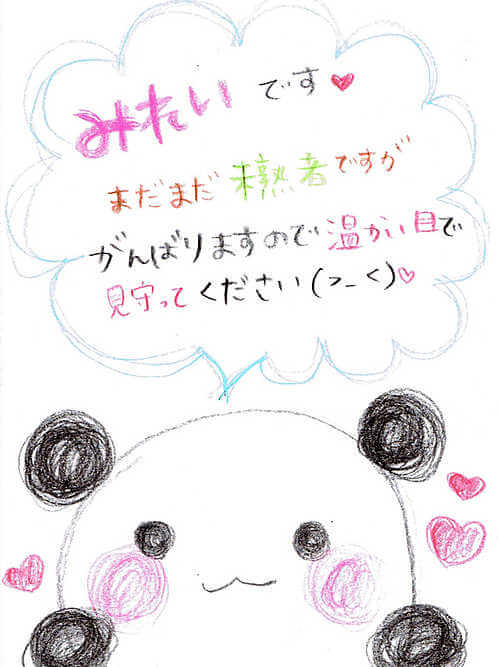 みたいです♥
まだまだ未熟者ですが
がんばりますので温かい目で
見守ってください(>_<)♡